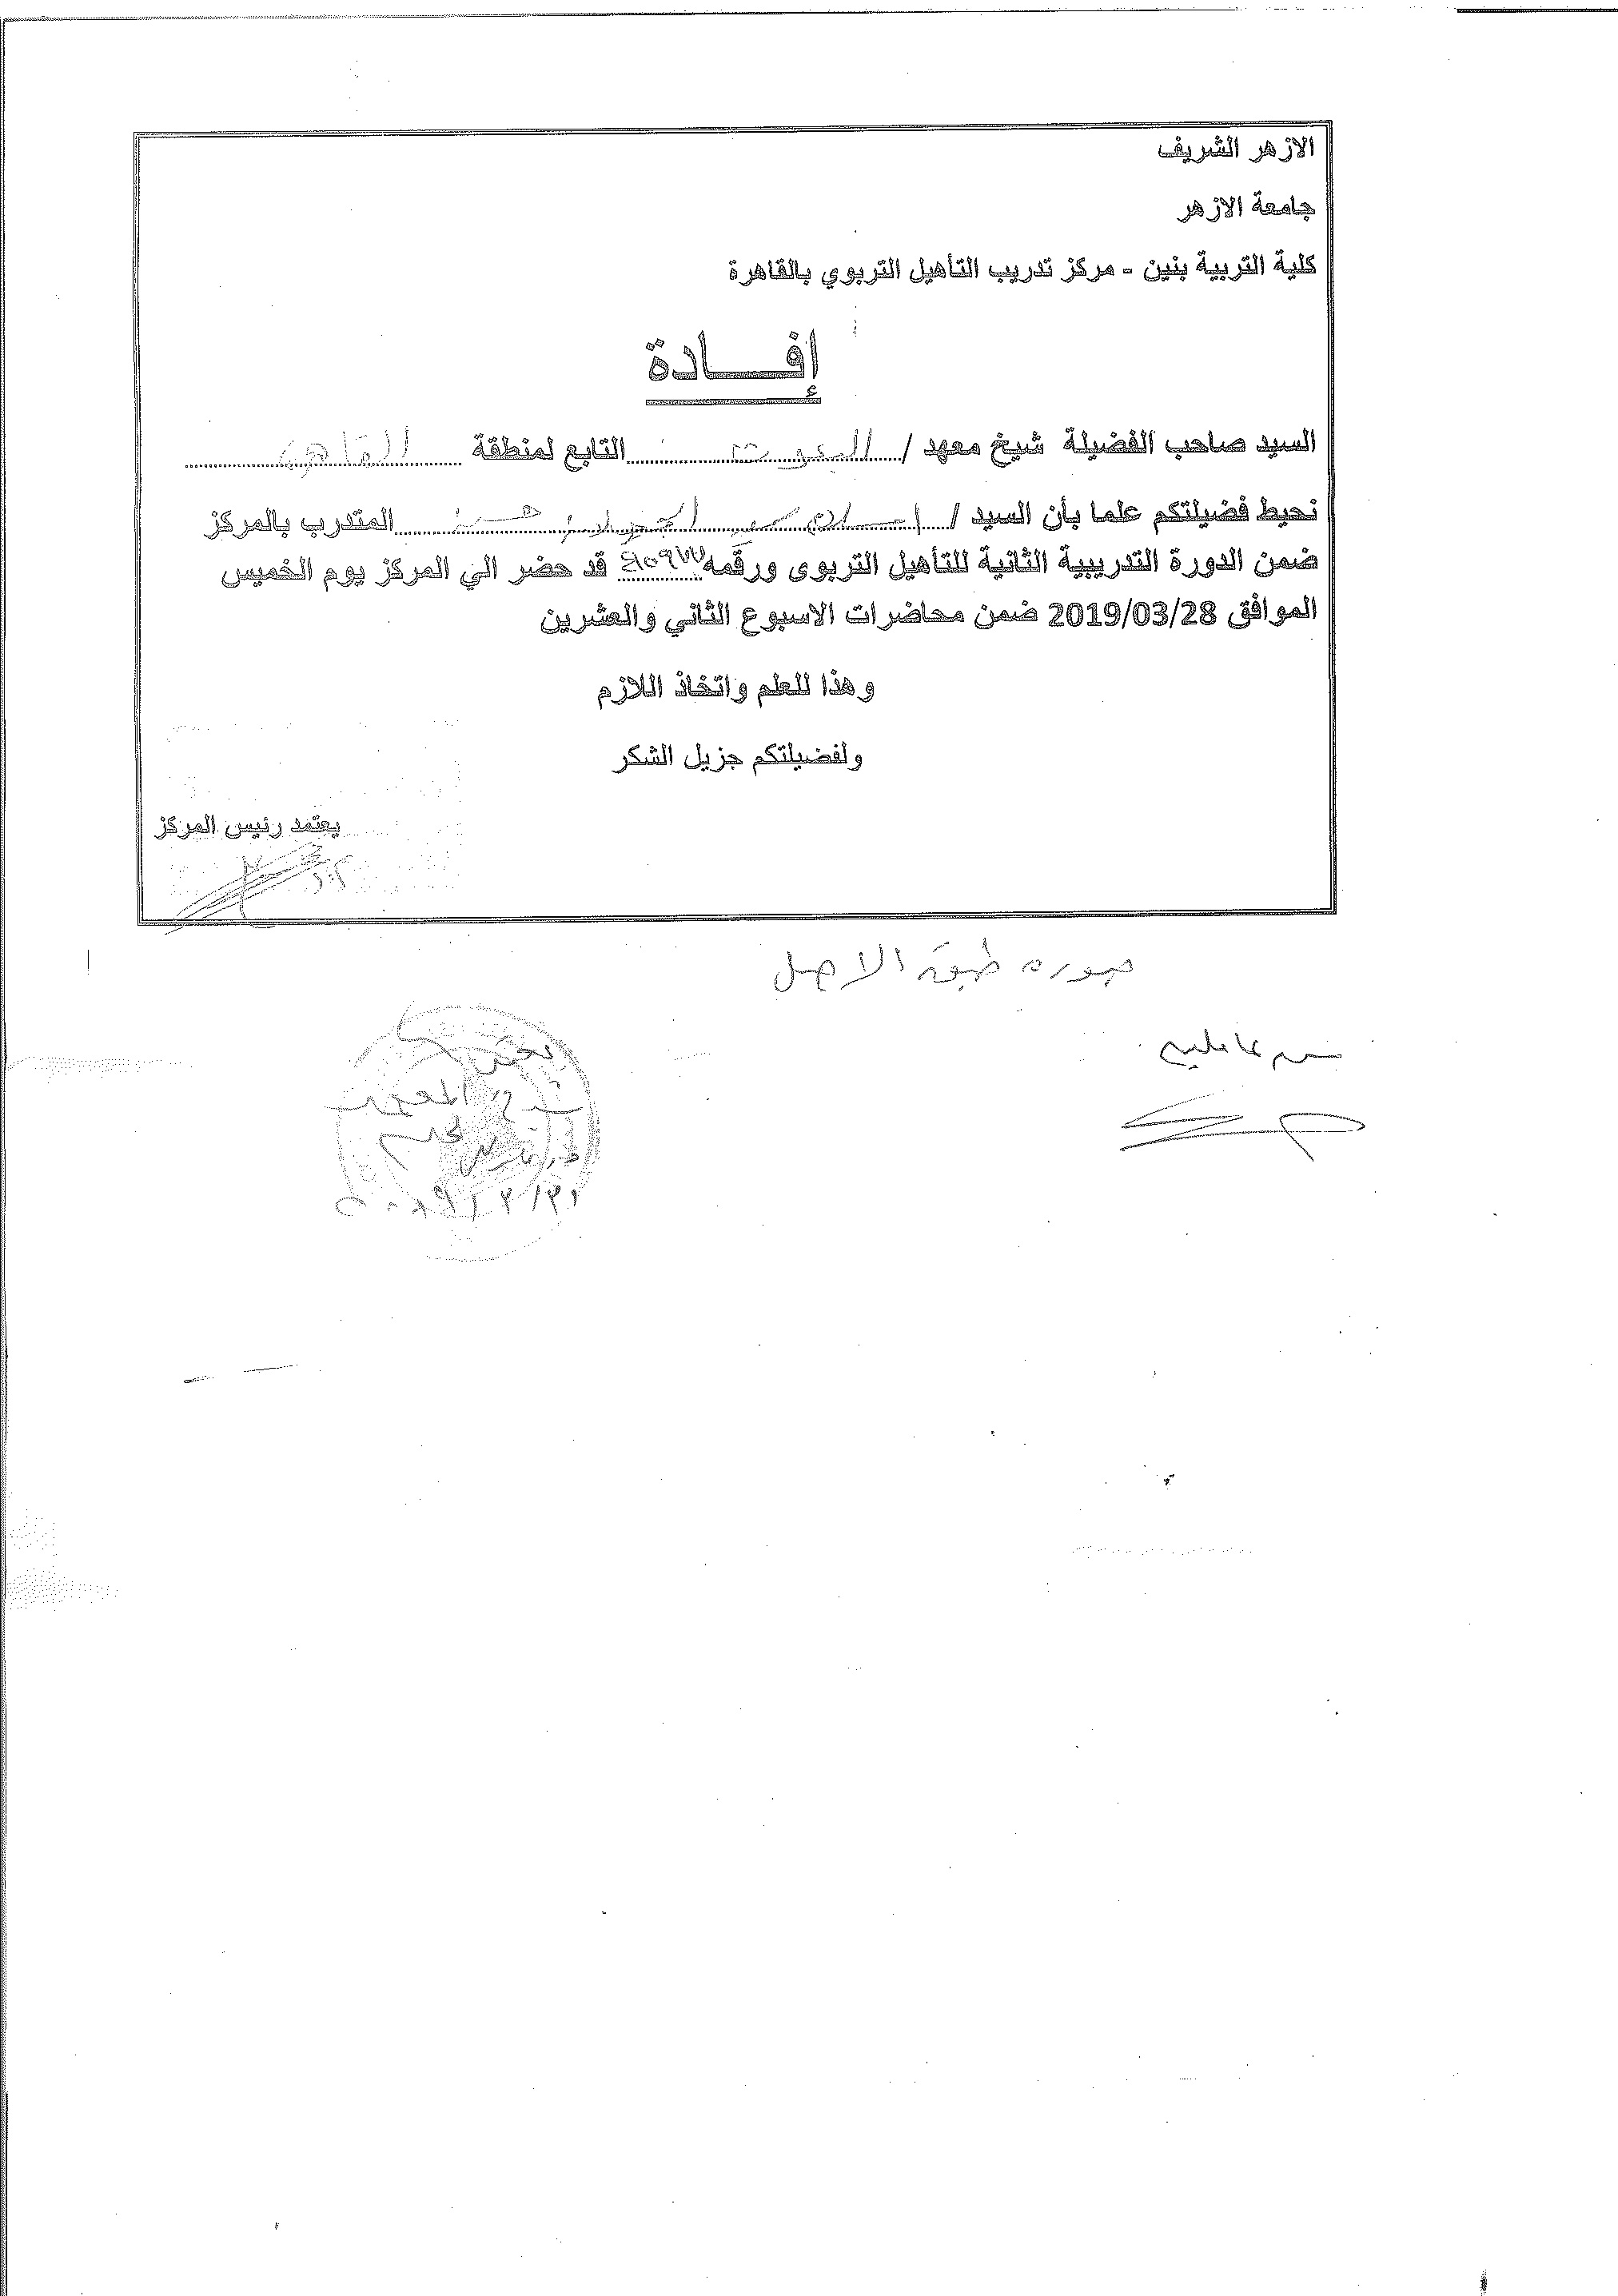 الازهر الشريف
جامعة الازهر
كلية التربية بنين - مركز تدريب التأهيل التربوي بالقاهرة
إفـــــادة
السيد صاحب الفضيلة شيخ معهد / التابع لمنطقة القاهرة
نحيط فضيلتكم علما بأن السيد / المتدرب بالمركز
ضمن الدورة التدريبية الثانية للتأهيل التربوى ورقمه قد حضر الي المركز يوم الخميس
الموافق 2019/03/28 ضمن محاضرات الاسبوع الثاني والعشرين
وهذا للعلم واتخاذ اللازم
ولفضيلتكم جزيل الشكر
يعتمد رئيس المركز
صوره طبق الاصل